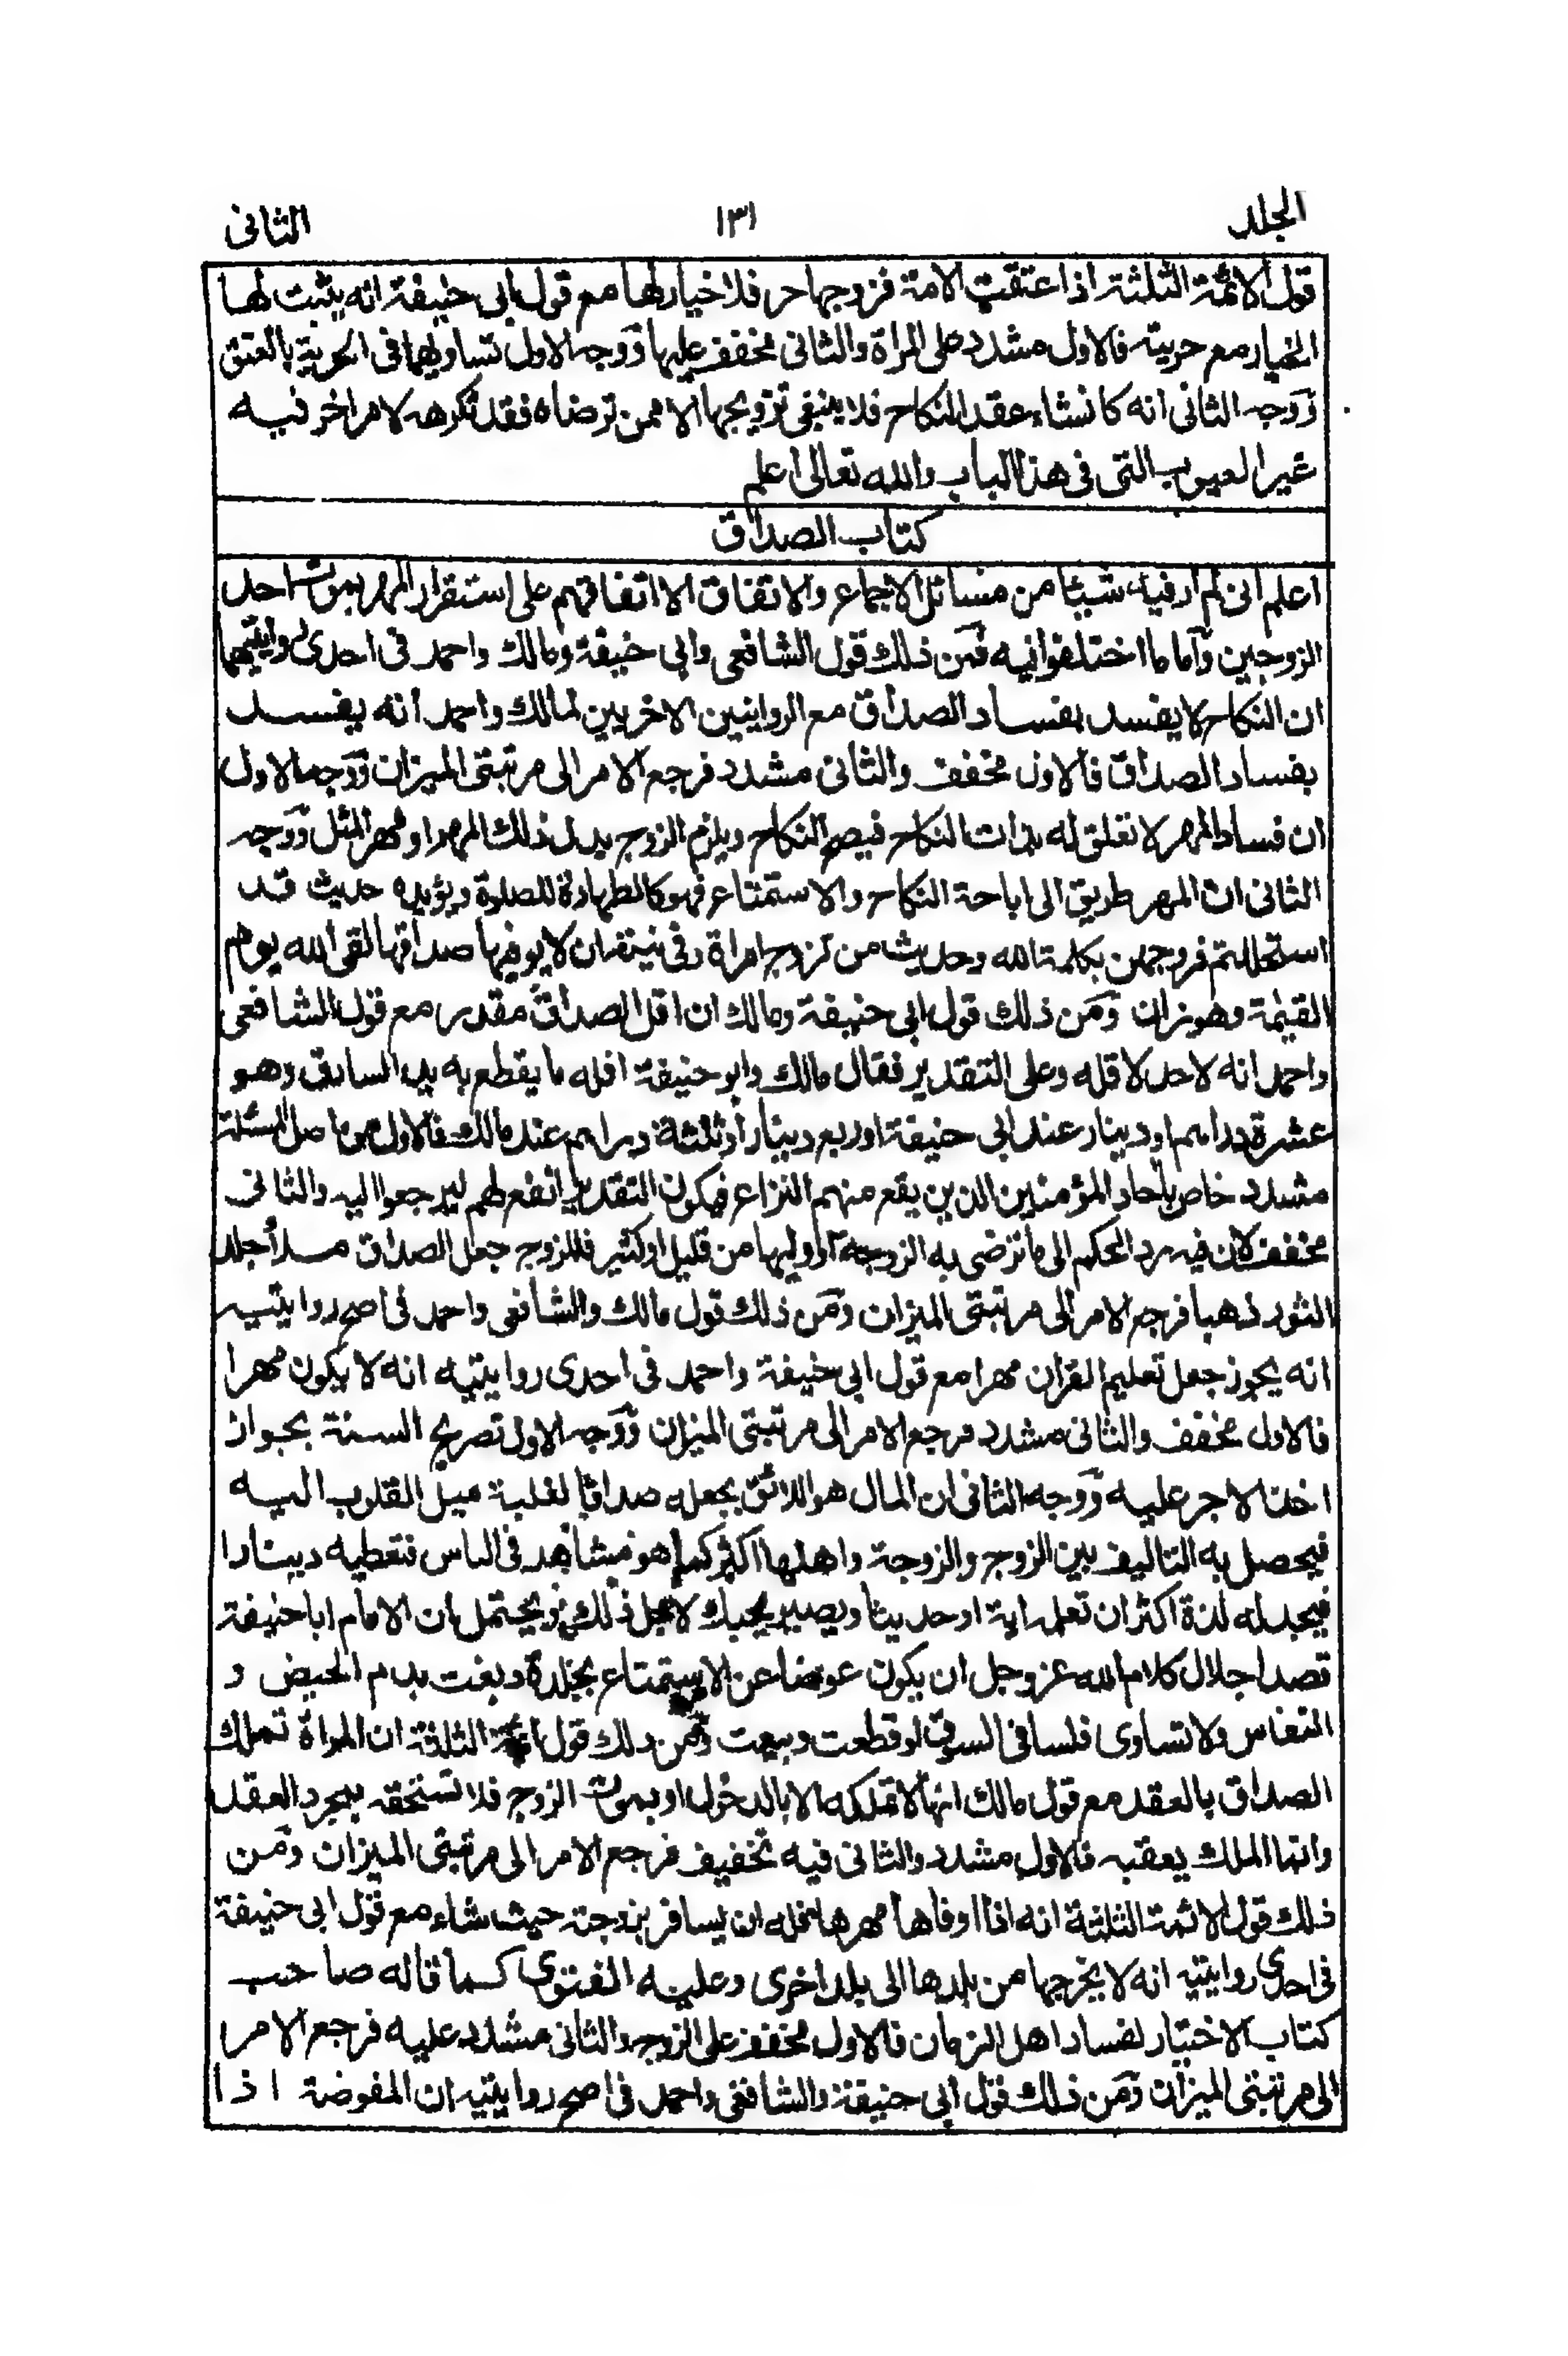 الجلد ١٣١ الثانى
قول الائمة الثلثة اذا اعتقت الامة فزوجها حر فلا خيار لها مع قول ابى حنيفة انه يثبت لها
الخيار مع حريته فالاول مشدد على المرأة والثانى مخفف عليها ووجه الاول تساويهما فى الحرية بالعتق
ووجه الثانى انه كانشاء عقد النكاح فلا ينبغى تزويجها الا ممن ترضاه فقد تكرهه لامر اخر فيه
غير العيوب التى فى هذا الباب والله تعالى اعلم
كتاب الصداق
اعلم انى لم ار فيه شيئا من مسائل الاجماع والاتفاق الا اتفاقهم على استقرار المهر بموت احد
الزوجين وأما ما اختلفوا فيه فمن ذلك قول الشافعى وابى حنيفة ومالك واحمد فى احدى روايتيهما
ان النكاح لا يفسد بفساد الصداق مع الروايتين الاخريين لمالك واحمد انه يفسد
بفساد الصداق فالاول مخفف والثانى مشدد فرجع الامر الى مرتبتى الميزان ووجه الاول
ان فساد المهر لا تعلق له بذات النكاح فيصح النكاح ويلزم الزوج بدل ذلك المهر او مهر المثل ووجه
الثانى ان المهر طريق الى اباحة النكاح والاستمتاع فهو كالطهارة للصلوة ويؤيده حديث قد
استحللتم فروجهن بكلمة الله وحديث من تزوج امرأة وفى نيته ان لا يوفيها صداقها لقى الله يوم
القيٰمة وهو زان ومن ذلك قول ابى حنيفة ومالك ان اقل الصداق مقدر مع قول الشافعى
واحمد انه لاحد لاقله وعلى التقدير فقال مالك وابو حنيفة اقله ما يقطع به يد السارق وهو
عشرة دراهم او دينار عند ابى حنيفة او ربع دينار او ثلثة دراهم عند مالك فالاول من اصل المسئلة
مشدد خاص باحاد المؤمنين الذين يقع منهم النزاع فيكون التقدير انفع لهم ليرجعوا اليه والثانى
مخفف لان فيه رد الحكم الى ما ترضى به الزوجة او وليها من قليل او كثير فللزوج جعل الصداق مسدأجلد
الثور ذهبا فرجع الامر الى مرتبتى الميزان ومن ذلك قول مالك والشافعى واحمد فى اصح روايتيه
انه يجوز جعل تعليم القران مهرا مع قول ابى حنيفة واحمد فى احدى روايتيه انه لا يكون مهرا
فالاول مخفف والثانى مشدد فرجع الامر الى مرتبتى الميزان ووجه الاول تصريح السنة بجواز
اخذ الاجر عليه ووجه الثانى ان المال هو اللائق بجعله صداقا لغلبة ميل القلوب اليه
فيحصل به التاليف بين الزوج والزوجة واهلها اكثر كما هو مشاهد فى الناس فتعطيه دينارا
فيجد له لذة اكثر ان تعلمه اية او حديثا ويصير يحبك لاجل ذلك ويحتمل ان الامام ابا حنيفة
قصد اجلال كلام الله عز وجل ان يكون عوضا عن الاستمتاع بجلدة دبغت بدم الحيض و
النفاس ولا تساوى فلسا فى السوق لو قطعت وبيعت ومن ذلك قول ائمة الثلثة ان المرأة تملك
الصداق بالعقد مع قول مالك انها لا تملكه الا بالدخول او بموت الزوج فلا تستحقه بمجرد العقد
وانما الملك يعقبه فالاول مشدد والثانى فيه تخفيف فرجع الامر الى مرتبتى الميزان ومن
ذلك قول الائمة الثلثة انه اذا اوفاها مهرها فله ان يسافر بزوجته حيث شاء مع قول ابى حنيفة
فى احدى روايتيه انه لا يخرجها من بلدها الى بلد اخرى وعليه الفتوى كما قاله صاحب
كتاب الاختيار لفساد اهل الزمان فالاول مخفف على الزوج والثانى مشدد عليه فرجع الامر
الى مرتبتى الميزان ومن ذلك قول ابى حنيفة والشافعى واحمد فى اصح روايتيه ان المفوضة اذا